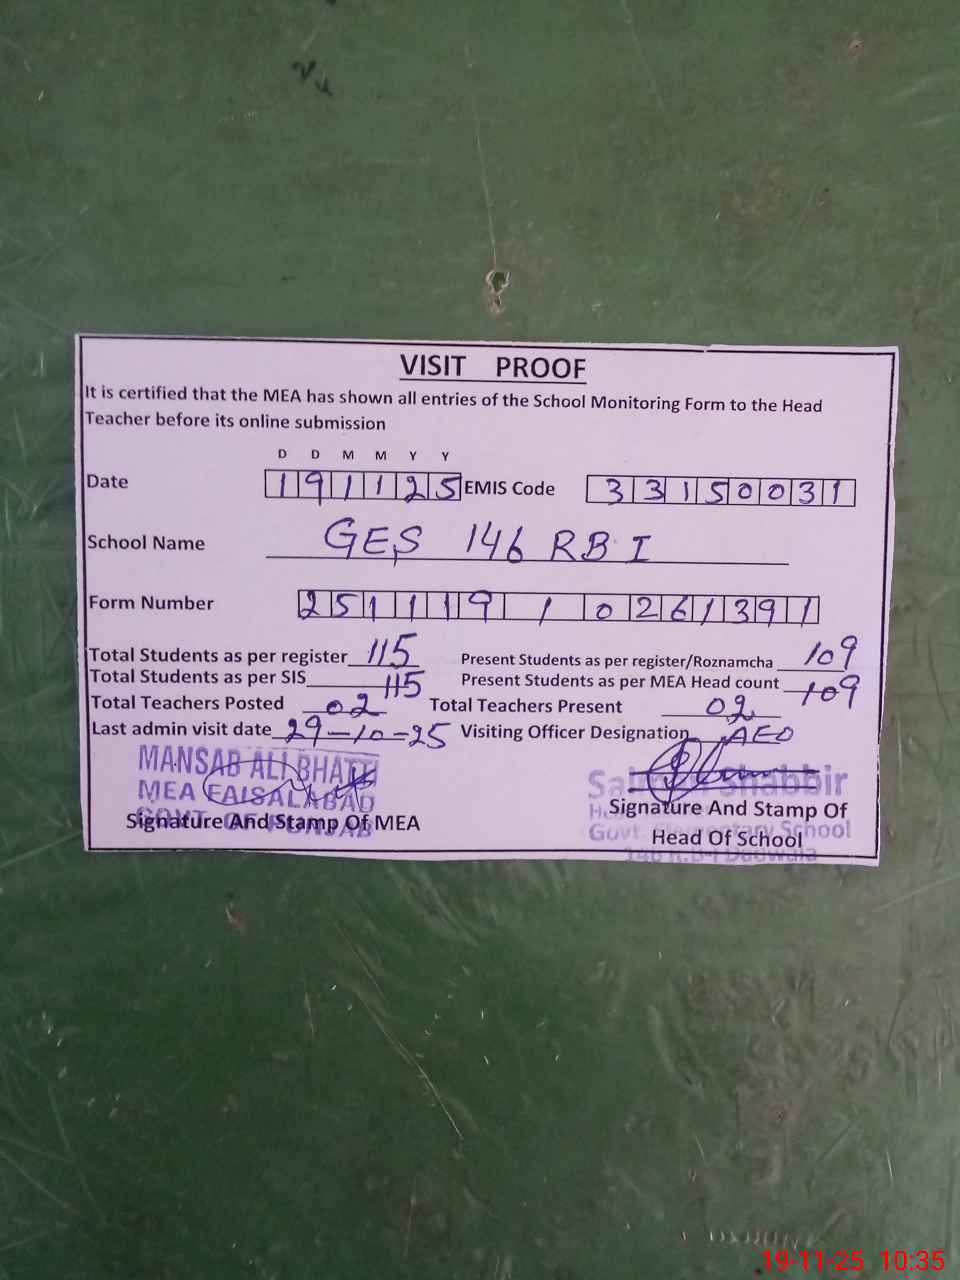 VISIT PROOF
It is certified that the MEA has shown all entries of the School Monitoring Form to the Head
Teacher before its online submission
D D M M Y Y
Date 191125 EMIS Code 33150031
School Name GES 146 RB I
Form Number 251119 1 0261391
Total Students as per register 115 Present Students as per register/Roznamcha 109
Total Students as per SIS 115 Present Students as per MEA Head count 109
Total Teachers Posted 02 Total Teachers Present 02
Last admin visit date 29-10-25 Visiting Officer Designation AEO
MANSAB ALI BHATTI
MEA FAISALABAD
GOVT. OF PUNJAB
Signature And Stamp Of MEA
Shabbir
Signature And Stamp Of
Govt. Elementary School
Head Of School
19-11-25 10:35